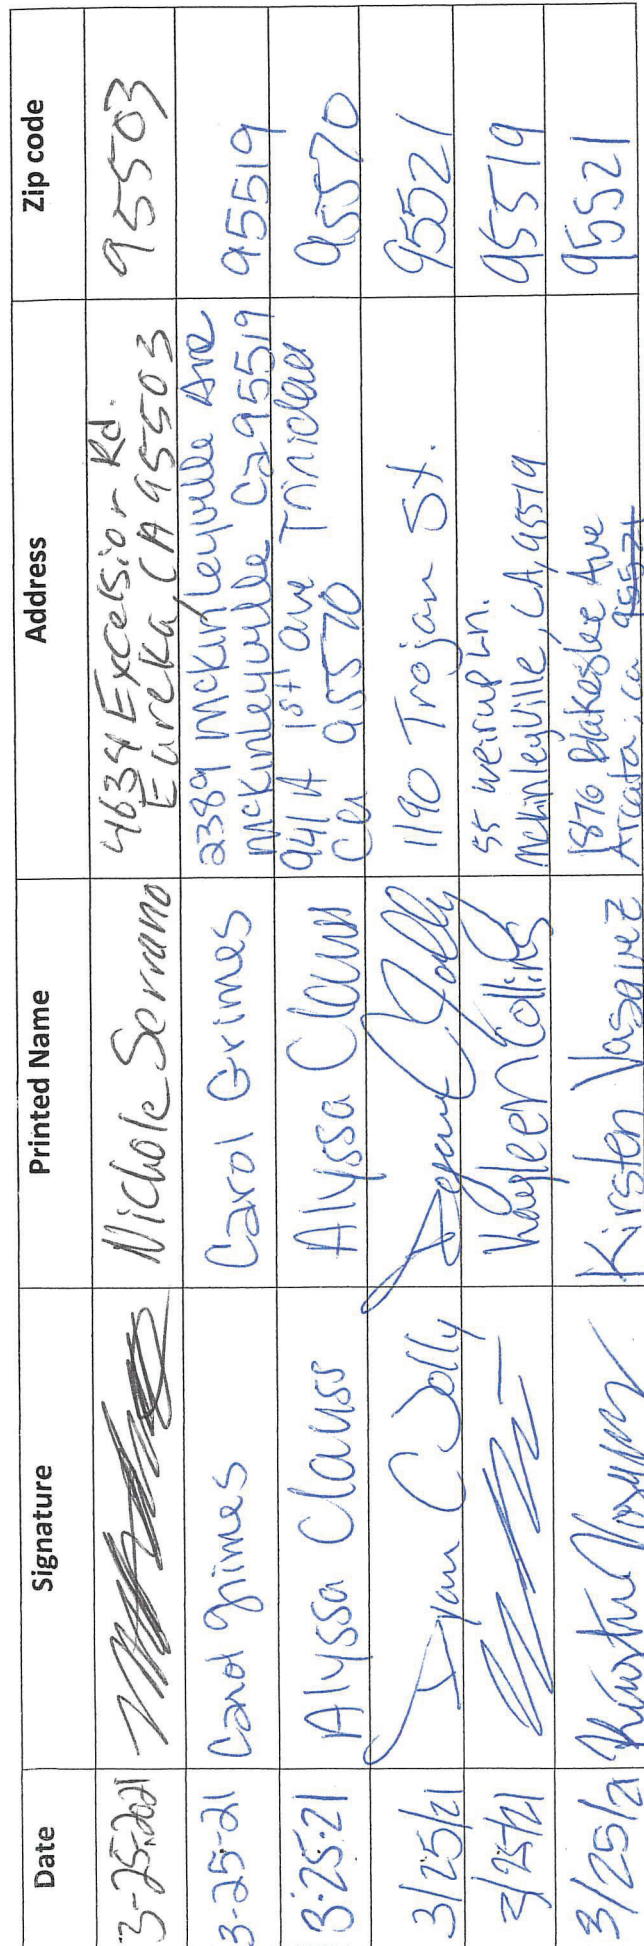 Date Signature Printed Name Address Zip code
3-25-2021 Nichole Serrano 4634 Excelsior Rd. 95503
Eureka, CA 95503
3-25-21 Carol Grimes Carol Grimes 2389 McKinleyville Ave 95519
McKinleyville Ca 95519
3-25-21 Alyssa Clauss Alyssa Clauss 941 A 1st ave Trinidad 95570
Ca 95570
3/25/21 Dyan C Jolly 1190 Trojan St. 95521
3/25/21 Kayleen Collins 55 Weirup Ln. 95519
McKinleyville, CA, 95519
3/25/21 Kirsten Vasquez 1876 Blakeslee Ave 95521
Arcata, ca 95521